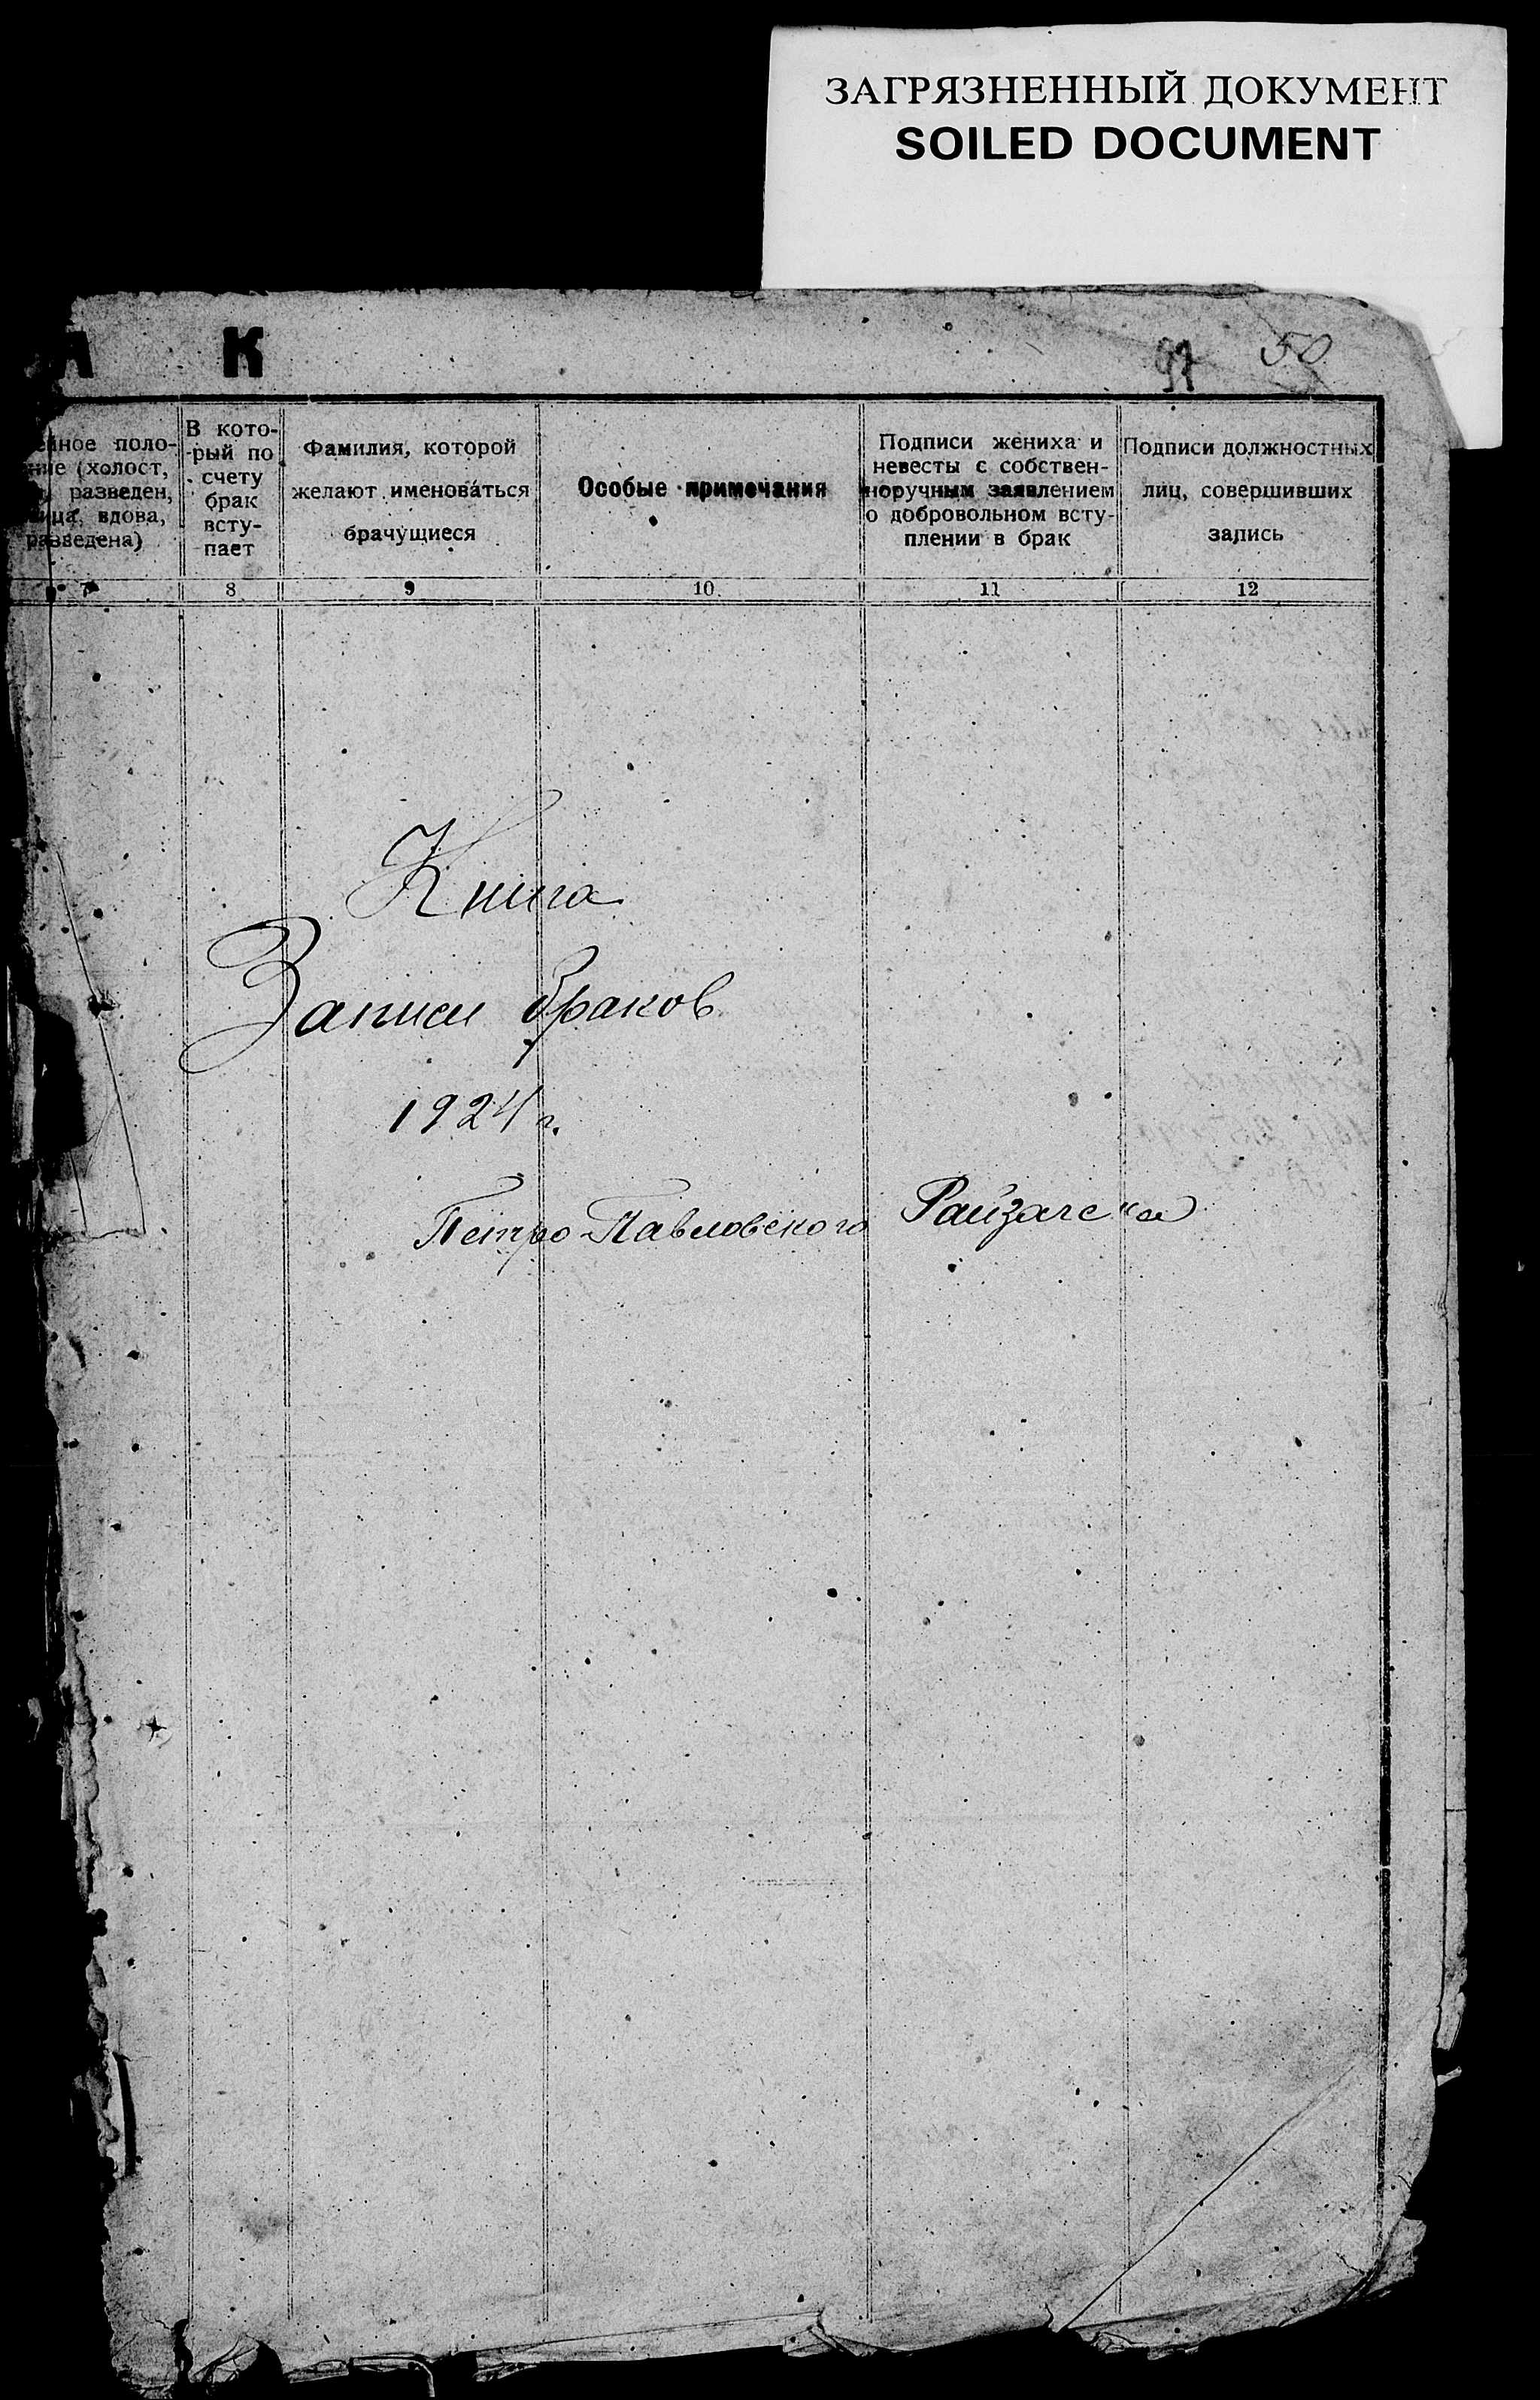 ЗАГРЯЗНЕННЫЙ ДОКУМЕНТ
SOILED DOCUMENT
А К
50
поло-
(холост,
разведен,
вдова,
разведена)
7
В кото-
рый по
счету
брак
всту-
пает
8
Фамилия, которой
желают именоваться
брачущиеся
9
Особые примечания
10
Подписи жениха и
невесты с собствен-
норучным заявлением
о добровольном всту-
плении в брак
11
Подписи должностных
лиц, совершивших
запись
12
Книга
Записи браков
1924 г.
Петро-Павловского Райзагса